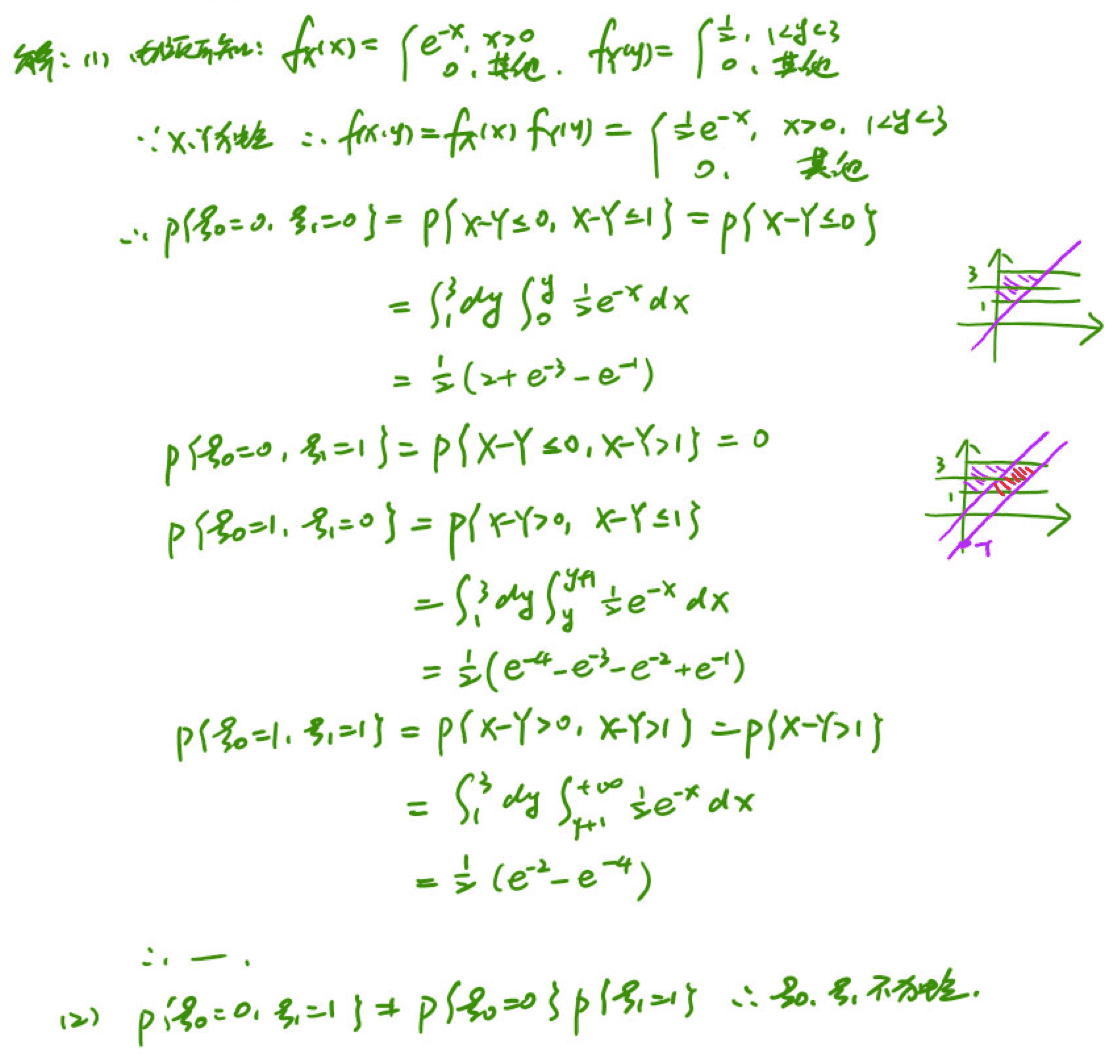 解: (1) 由题可知: f_X(x) = { e^{-x}, x>0 0, 其他. f_Y(y) = { 1/2, 1<y<3 0, 其他
∵ X,Y独立 ∴ f(x,y) = f_X(x) f_Y(y) = { 1/2 e^{-x}, x>0, 1<y<3 0, 其他
∴ P{ξ₀=0, ξ₁=0} = P{X-Y≤0, X-Y≤1} = P{X-Y≤0}
= ∫₁³ dy ∫₀^y 1/2 e^{-x} dx
= 1/2 (2+e^{-3}-e^{-1})
3
1
P{ξ₀=0, ξ₁=1} = P{X-Y≤0, X-Y>1} = 0
P{ξ₀=1, ξ₁=0} = P{X-Y>0, X-Y≤1}
= ∫₁³ dy ∫_y^{y+1} 1/2 e^{-x} dx
= 1/2 (e^{-4}-e^{-3}-e^{-2}+e^{-1})
3
1
-1
P{ξ₀=1, ξ₁=1} = P{X-Y>0, X-Y>1} = P{X-Y>1}
= ∫₁³ dy ∫_{y+1}^{+∞} 1/2 e^{-x} dx
= 1/2 (e^{-2}-e^{-4})
∴ — .
(2) P{ξ₀=0, ξ₁=1} ≠ P{ξ₀=0} P{ξ₁=1} ∴ ξ₀, ξ₁ 不独立.